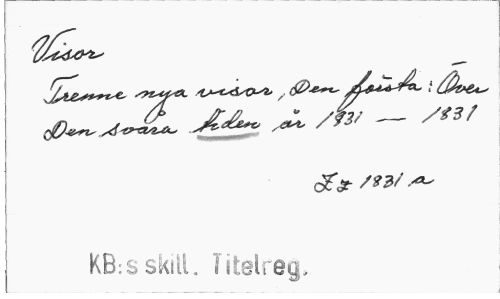 Visor
Trenne nya visor, Den första: Över
Den svåra tiden år 1831 — 1831
Zz 1831 a
KB:s skill. Titelreg.